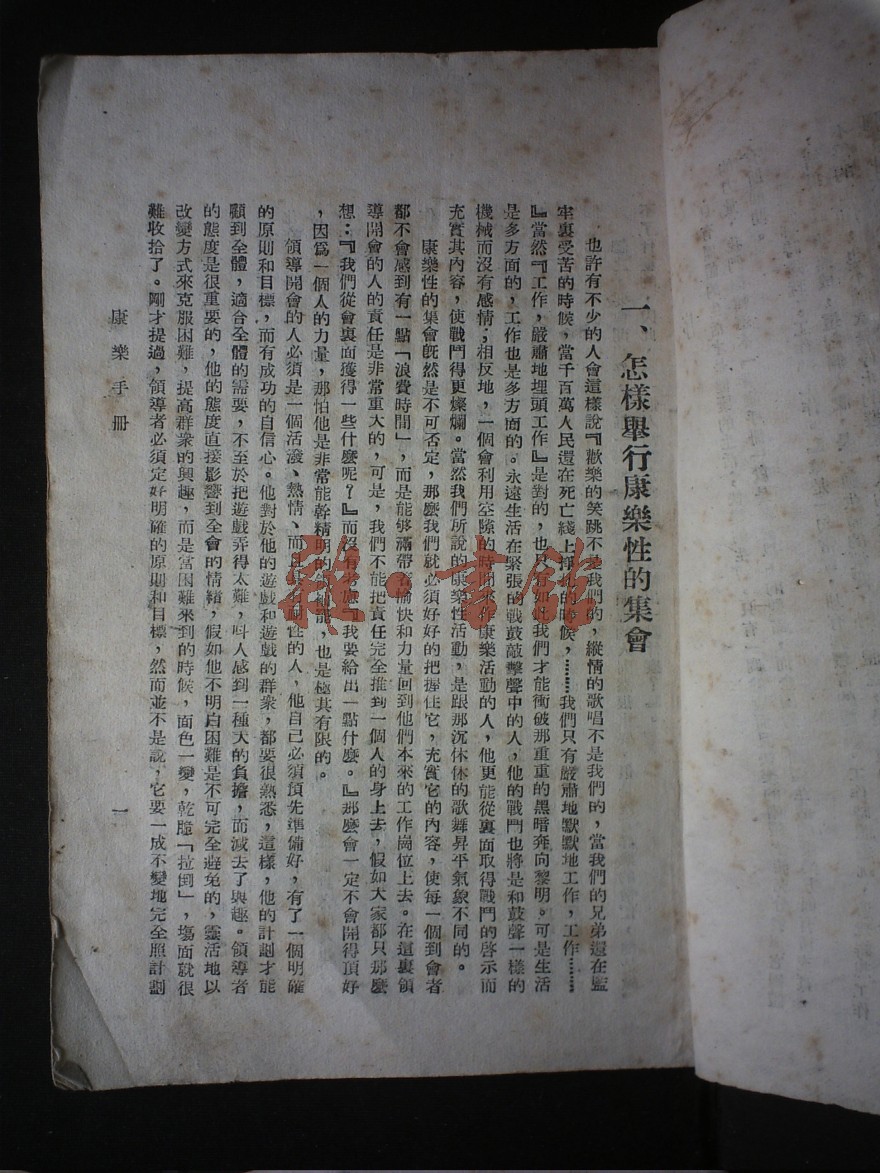 一、怎樣舉行康樂性的集會
也許有不少的人會這樣說『歡樂的笑跳不是我們的，縱情的歌唱不是我們的，當我們的兄弟還在監
牢裏受苦的時候，當千百萬人民還在死亡綫上掙扎的時候，……我們只有嚴肅地默默地工作，工作……
』當然『工作，嚴肅地埋頭工作』是對的，也只有如此我們才能衝破那重重的黑暗奔向黎明。可是生活
是多方面的，工作也是多方面的。永遠生活在緊張的戰鼓敲擊聲中的人，他的戰鬥也將是和鼓聲一樣的
機械而沒有感情；相反地，一個會利用空隙的時間來作康樂活動的人，他更能從裏面取得戰鬥的啓示而
充實其內容，使戰鬥得更燦爛。當然我們所說的康樂性活動，是跟那沉休休的歌舞昇平氣象不同的。
康樂性的集會旣然是不可否定，那麼我們就必須好好的把握住它，充實它的內容，使每一個到會者
都不會感到有一點「浪費時間」，而是能够滿帶着愉快和力量回到他們本來的工作崗位上去。在這裏領
導開會的人的責任是非常重大的，可是，我們不能把責任完全推到一個人的身上去，假如大家都只那麼
想：『我們從會裏面獲得一些什麼呢？』而沒有考慮『我要給出一點什麼。』那麼會一定不會開得頂好
，因爲一個人的力量，那怕他是非常能幹精明的領袖，也是極其有限的。
領導開會的人必須是一個活潑、熱情、而且具有耐性的人，他自己必須預先準備好，有了一個明確
的原則和目標，而有成功的自信心。他對於他的遊戲和遊戲的群衆，都要很熟悉，這樣，他的計劃才能
顧到全體，適合全體的需要，不至於把遊戲弄得太難，叫人感到一種大的負擔，而減去了興趣。領導者
的態度是很重要的，他的態度直接影響到全會的情緖，假如他不明白困難是不可完全避免的，靈活地以
改變方式來克服困難，提高群衆的興趣，而是當困難來到的時候，面色一變，乾脆「拉倒」，塲面就很
難收拾了。剛才提過，領導者必須定好明確的原則和目標，然而並不是說，它要一成不變地完全照計劃
康樂手冊
一
雅·書館